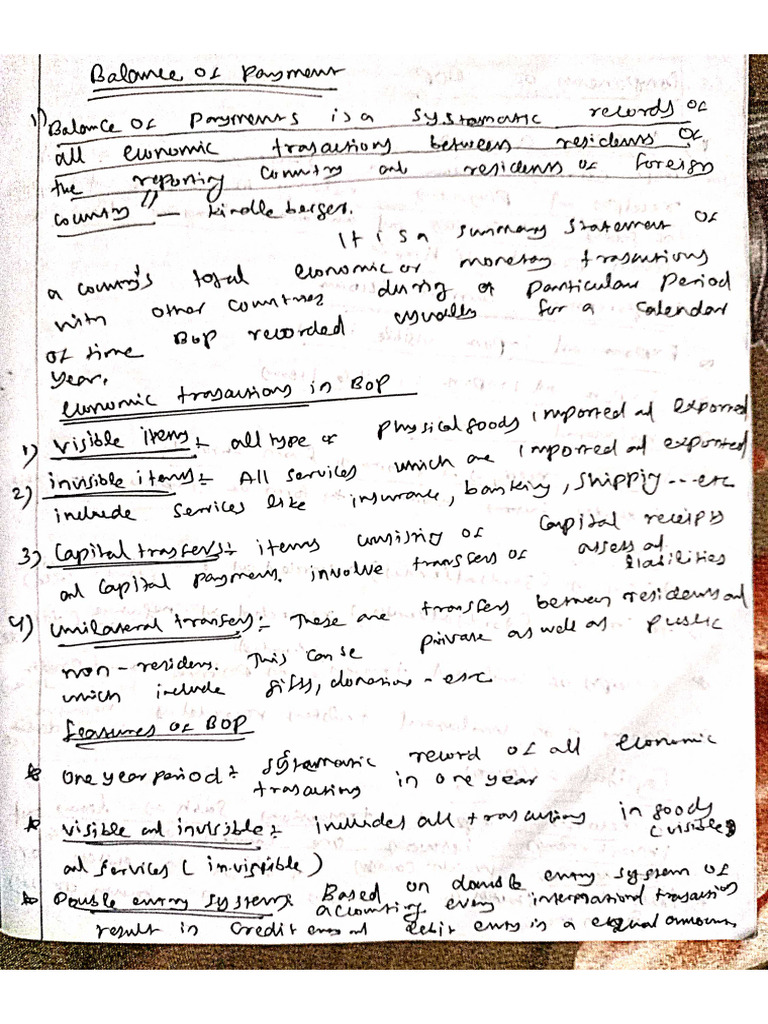 Balance of Payment
1) Balance of Payments is a systematic records of
all economic trasactions between residents of
the reporting country and residents of foreign
country" — Kindle berger.
It is a summary statement of
a country's total economic or monetary trasactions
with other countries during a particular period
of time BOP recorded usually for a calendar
year.
Economic trasactions in BOP
1) Visible items :- all type of physical goods imported and exported
2) invisible items :- All services which are imported and exported
include services like insurance, banking, shippig ... etc
3) Capital trasfers :- items consistig of capital receipts
and capital payments. involve transfers of assets and
liabilities
4) Unilateral transfers :- These are transfers between residents and
non-residens. This can be private as well as public
which include gifts, donations - etc
Features of BOP
* One year period :- systematic record of all economic
trasactions in one year
* Visible and invisible :- includes all trasactions in goods
(visible)
and services (invisible)
* Double entry system :- Based on double entry system of
accounting every international trasaction
result in credit entry and debit entry in a equal amount